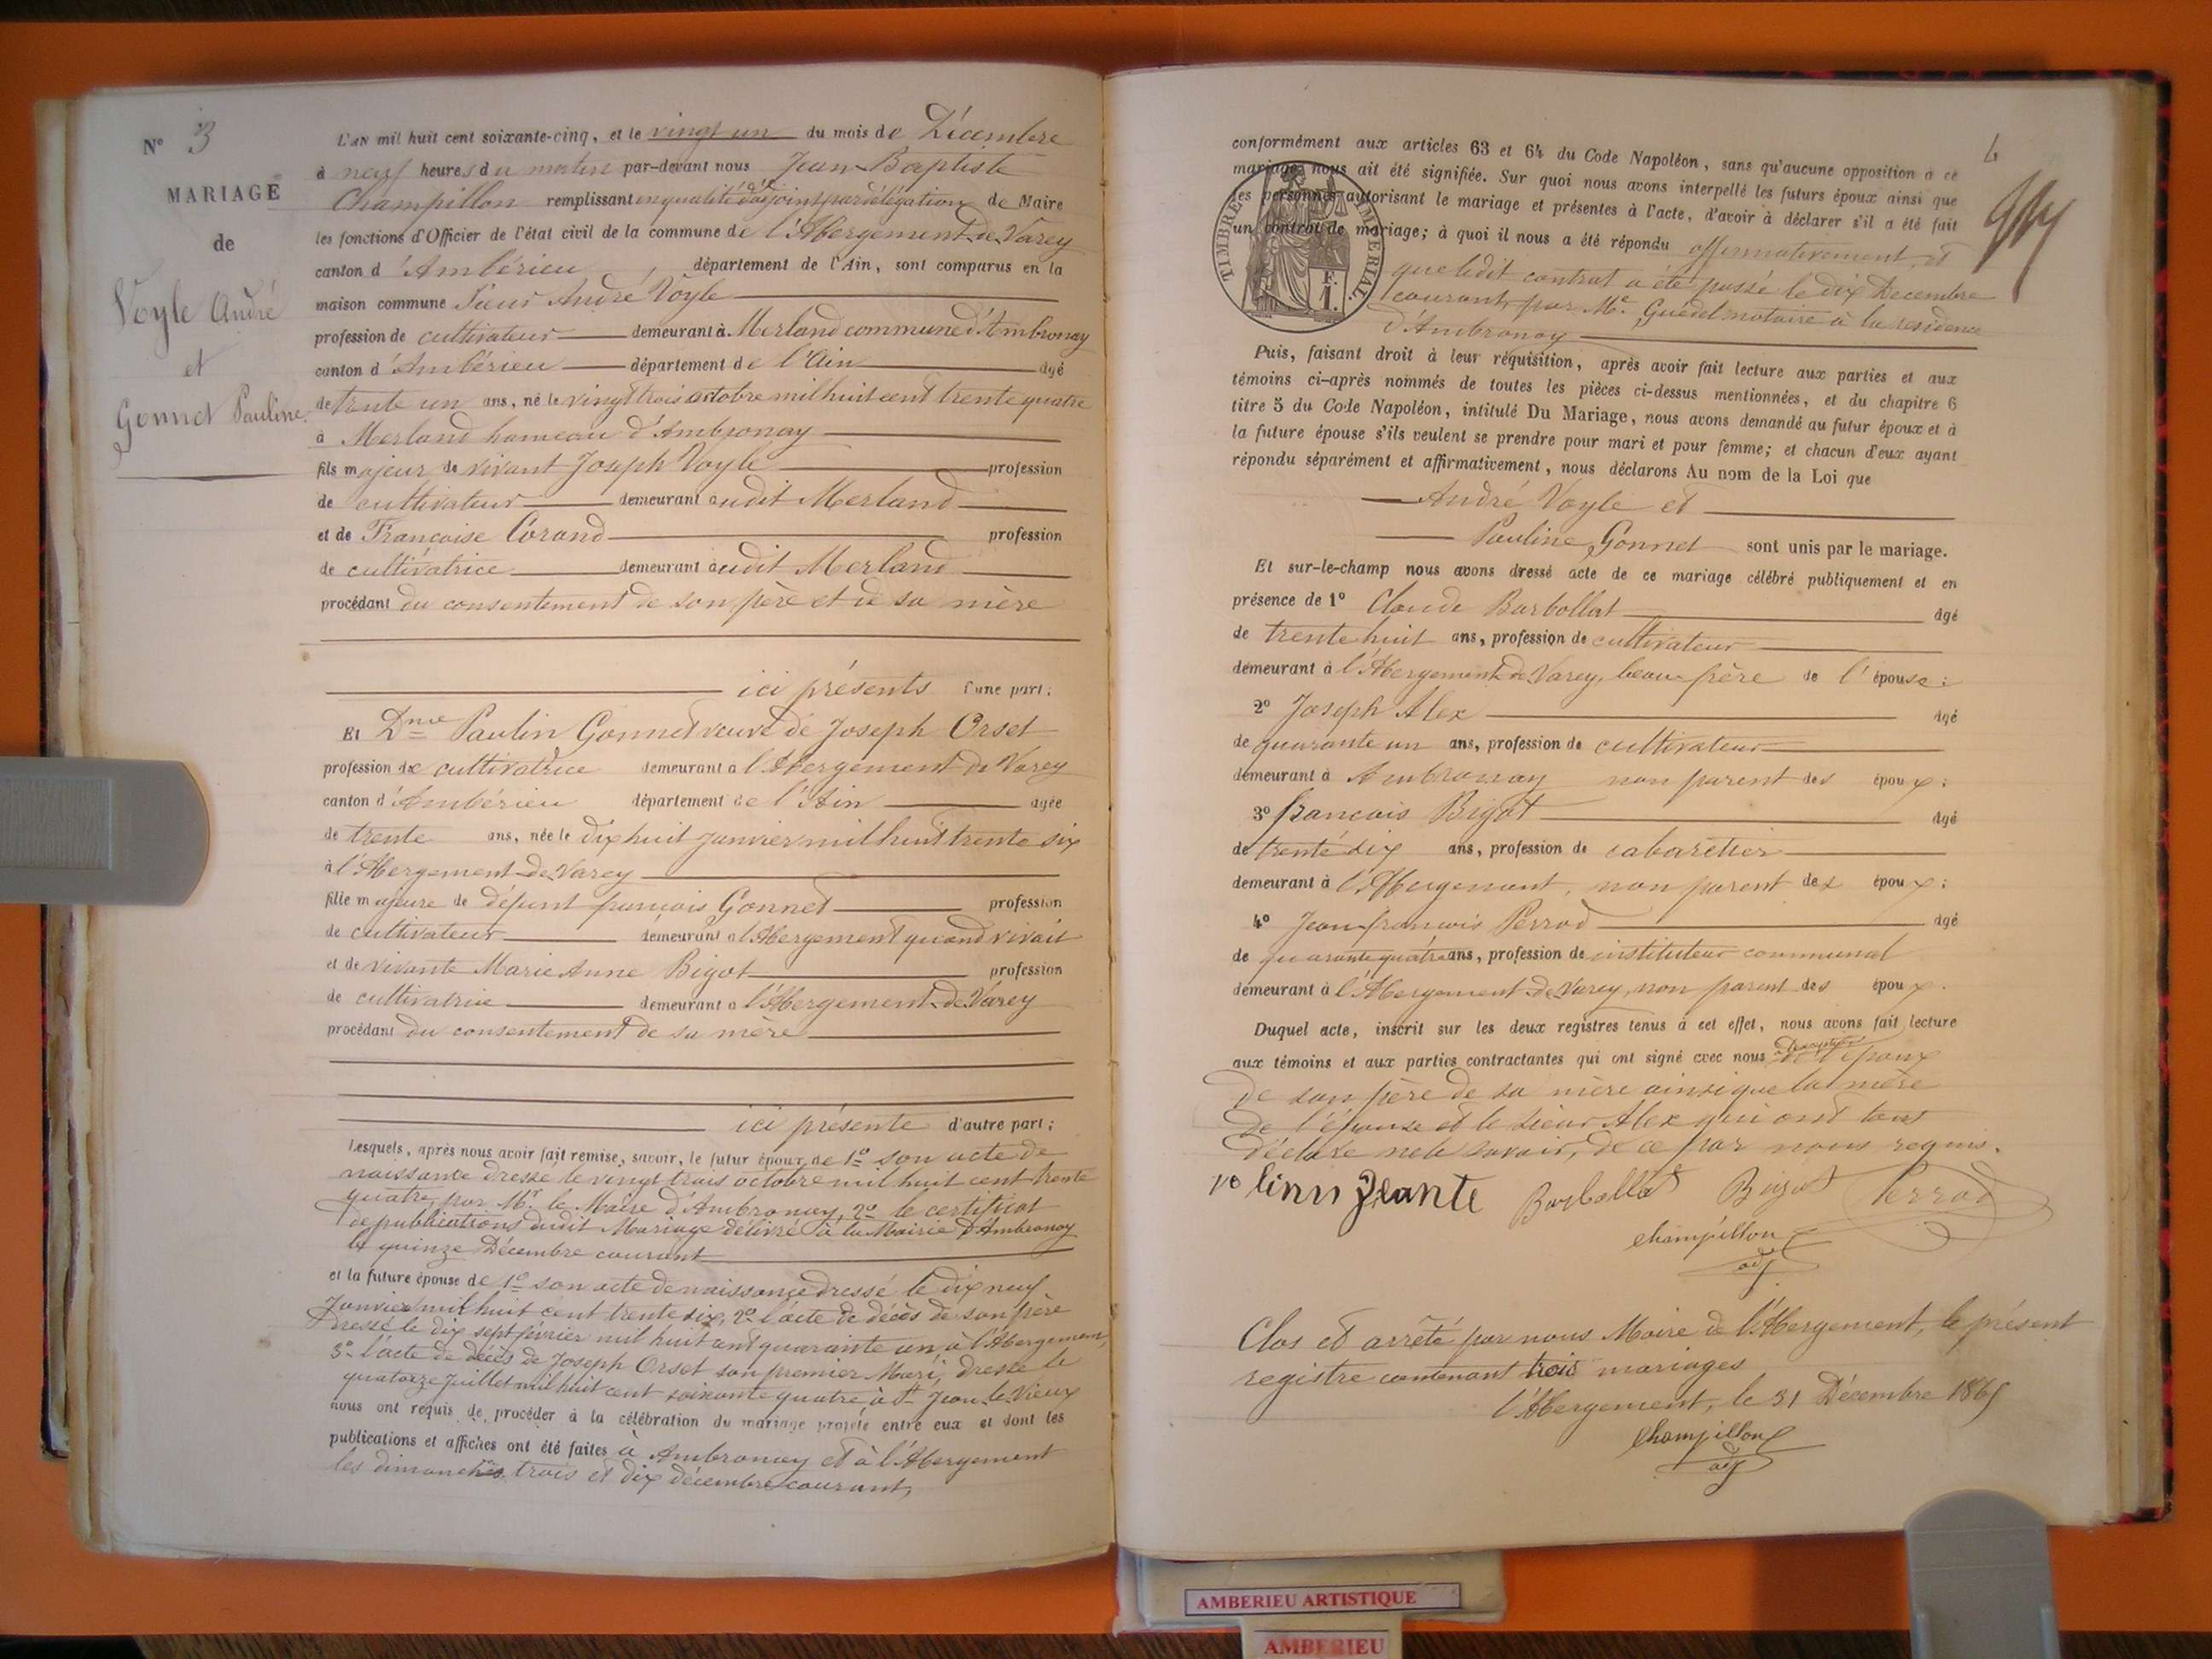 N° 3
MARIAGE
de
Voyle André
et
Gonnet Pauline.
L'AN mil huit cent soixante-cinq, et le vingt un du mois de Décembre
à neuf heures du matin par-devant nous Jean-Baptiste
Champillon remplissant en qualité d'adjoint par délégation de Maire
les fonctions d'Officier de l'état civil de la commune de l'Abergement-de-Varey
canton d'Ambérieu département de l'Ain, sont comparus en la
maison commune Sieur André Voyle
profession de cultivateur demeurant à Merland commune d'Ambronay
canton d'Ambérieu département de l'Ain âgé
de trente un ans, né le vingt trois octobre mil huit cent trente quatre
à Merland hameau d'Ambronay
fils majeur de vivant Joseph Voyle profession
de cultivateur demeurant audit Merland
et de Françoise Corand profession
de cultivatrice demeurant audit Merland
procédant du consentement de son père et de sa mère
ici présents d'une part;
Et Dme Paulin Gonnet veuve de Joseph Orset
profession de cultivatrice demeurant à l'Abergement-de-Varey
canton d'Ambérieu département de l'Ain âgée
de trente ans, née le dix huit janvier mil huit trente six
à l'Abergement-de-Varey
fille majeure de défunt francois Gonnet profession
de cultivateur demeurant à l'Abergement quand vivait
et de vivante Marie Anne Bigot profession
de cultivatrice demeurant à l'Abergement-de-Varey
procédant du consentement de sa mère
ici présente d'autre part;
Lesquels, après nous avoir fait remise, savoir, le futur époux de 1° son acte de
naissance dressé le vingt trois octobre mil huit cent trente
quatre, par Mr. le Maire d'Ambronay, 2° le certificat
de publications dudit Mariage délivré à la Mairie d'Ambronay
le quinze Décembre courant
et la future épouse de 1° son acte de naissance dressé le dix neuf
Janvier mil huit cent trente six, 2° l'acte de décès de son père
dressé le dix sept février mil huit cent quarante un, à l'Abergement,
3° l'acte de décès de Joseph Orset son premier Mari, dressé le
quatorze Juillet mil huit cent soixante quatre à St Jean-le-Vieux
nous ont requis de procéder à la célébration du mariage projeté entre eux et dont les
publications et affiches ont été faites à Ambronay et à l'Abergement
les dimanches trois et dix décembre courant,
4
conformément aux articles 63 et 64 du Code Napoléon, sans qu'aucune opposition à ce
mariage nous ait été signifiée. Sur quoi nous avons interpellé les futurs époux ainsi que
les personnes autorisant le mariage et présentes à l'acte, d'avoir à déclarer s'il a été fait
un contrat de mariage; à quoi il nous a été répondu affirmativement, et
que ledit contrat a été passé le dix Decembre
courant, par Me. Guedel notaire à la résidence
d'Ambronay
TIMBRE IMPERIAL.
F.
1.
Puis, faisant droit à leur réquisition, après avoir fait lecture aux parties et aux
témoins ci-après nommés de toutes les pièces ci-dessus mentionnées, et du chapitre 6
titre 5 du Code Napoléon, intitulé Du Mariage, nous avons demandé au futur époux et à
la future épouse s'ils veulent se prendre pour mari et pour femme; et chacun d'eux ayant
répondu séparément et affirmativement, nous déclarons Au nom de la Loi que
André Voyle et
Pauline Gonnet sont unis par le mariage.
Et sur-le-champ nous avons dressé acte de ce mariage célébré publiquement et en
présence de 1° Claude Barbollat âgé
de trente huit ans, profession de cultivateur
demeurant à l'Abergement-de-Varey, beau-frère de l'épouse:
2° Joseph Alex âgé
de quarante un ans, profession de cultivateur
demeurant à Ambronay non parent des époux:
3° francois Bigot âgé
de trente six ans, profession de cabaretier
demeurant à l'Abergement, non parent des époux:
4° Jean-francois Perrod âgé
de quarante quatre ans, profession de instituteur communal
demeurant à l'Abergement-de-Varey, non parent des époux.
Duquel acte, inscrit sur les deux registres tenus à cet effet, nous avons fait lecture
aux témoins et aux parties contractantes qui ont signé avec nous à l'exception de l'époux
de son père de sa mère ainsi que la mère
de l'épouse et le sieur Alex qui ont tous
déclaré ne le savoir, de ce par nous requis.
Barbollat Bigot Perrod
Champillon
adj
Clos et arrêté par nous Maire de l'Abergement, le présent
registre contenant trois mariages
l'Abergement, le 31 Décembre 1865
Champillon
adj
AMBERIEU ARTISTIQUE
AMBERIEU